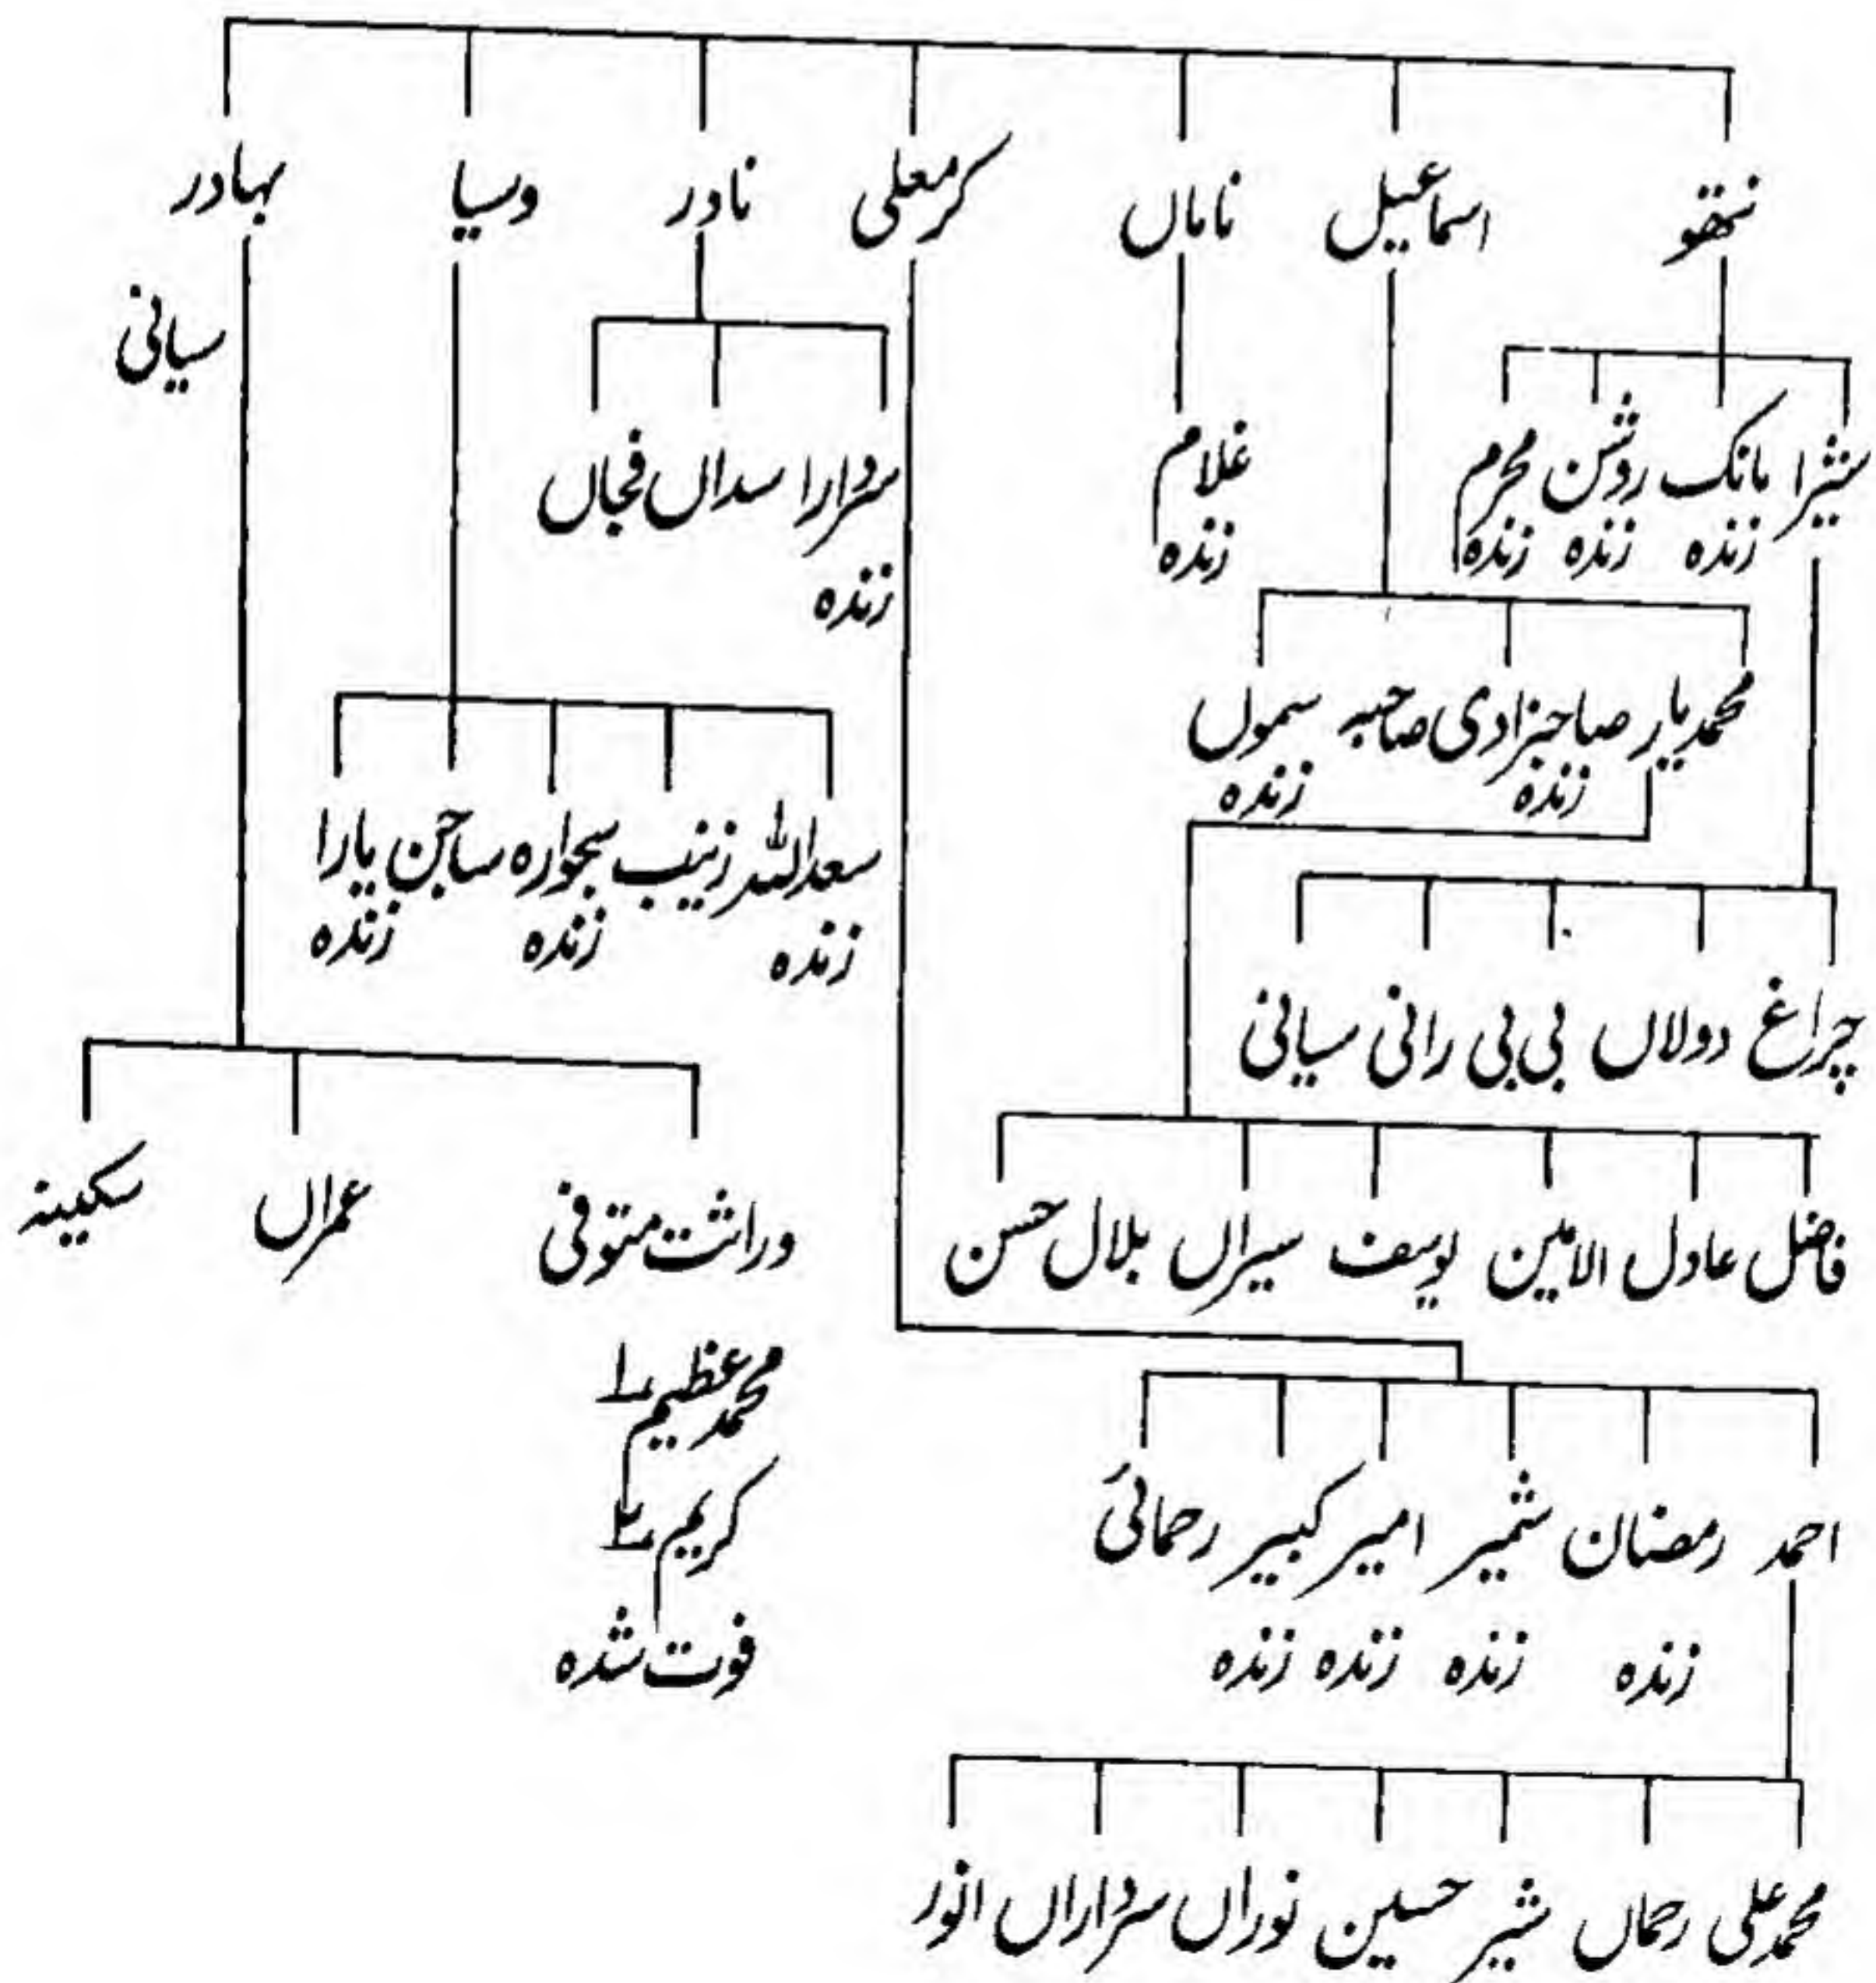 نتھو اسماعیل ناماں کرمعلی نادر وسیا بہادر
سیانی
مانک روشن محرم
زندہ زندہ زندہ
غلام
زندہ
سردارا سداں فجاں
زندہ
محمدیار صاحبزادی صاحبہ سموں
زندہ زندہ
سعداللہ زینب سجوارہ ساجن یارا
زندہ زندہ زندہ
چراغ دولاں بی بی رانی سیانی
فاضل عادل الامین یوسف سیراں بلال حسن
وراثت متوفی عمراں سکینہ
محمد عظیم ۱
کریم ۲
فوت شدہ
احمد رمضان شمیر امیر کبیر رحمائی
زندہ زندہ زندہ زندہ
محمد علی رحماں شیر حسین نوراں سرداراں انور